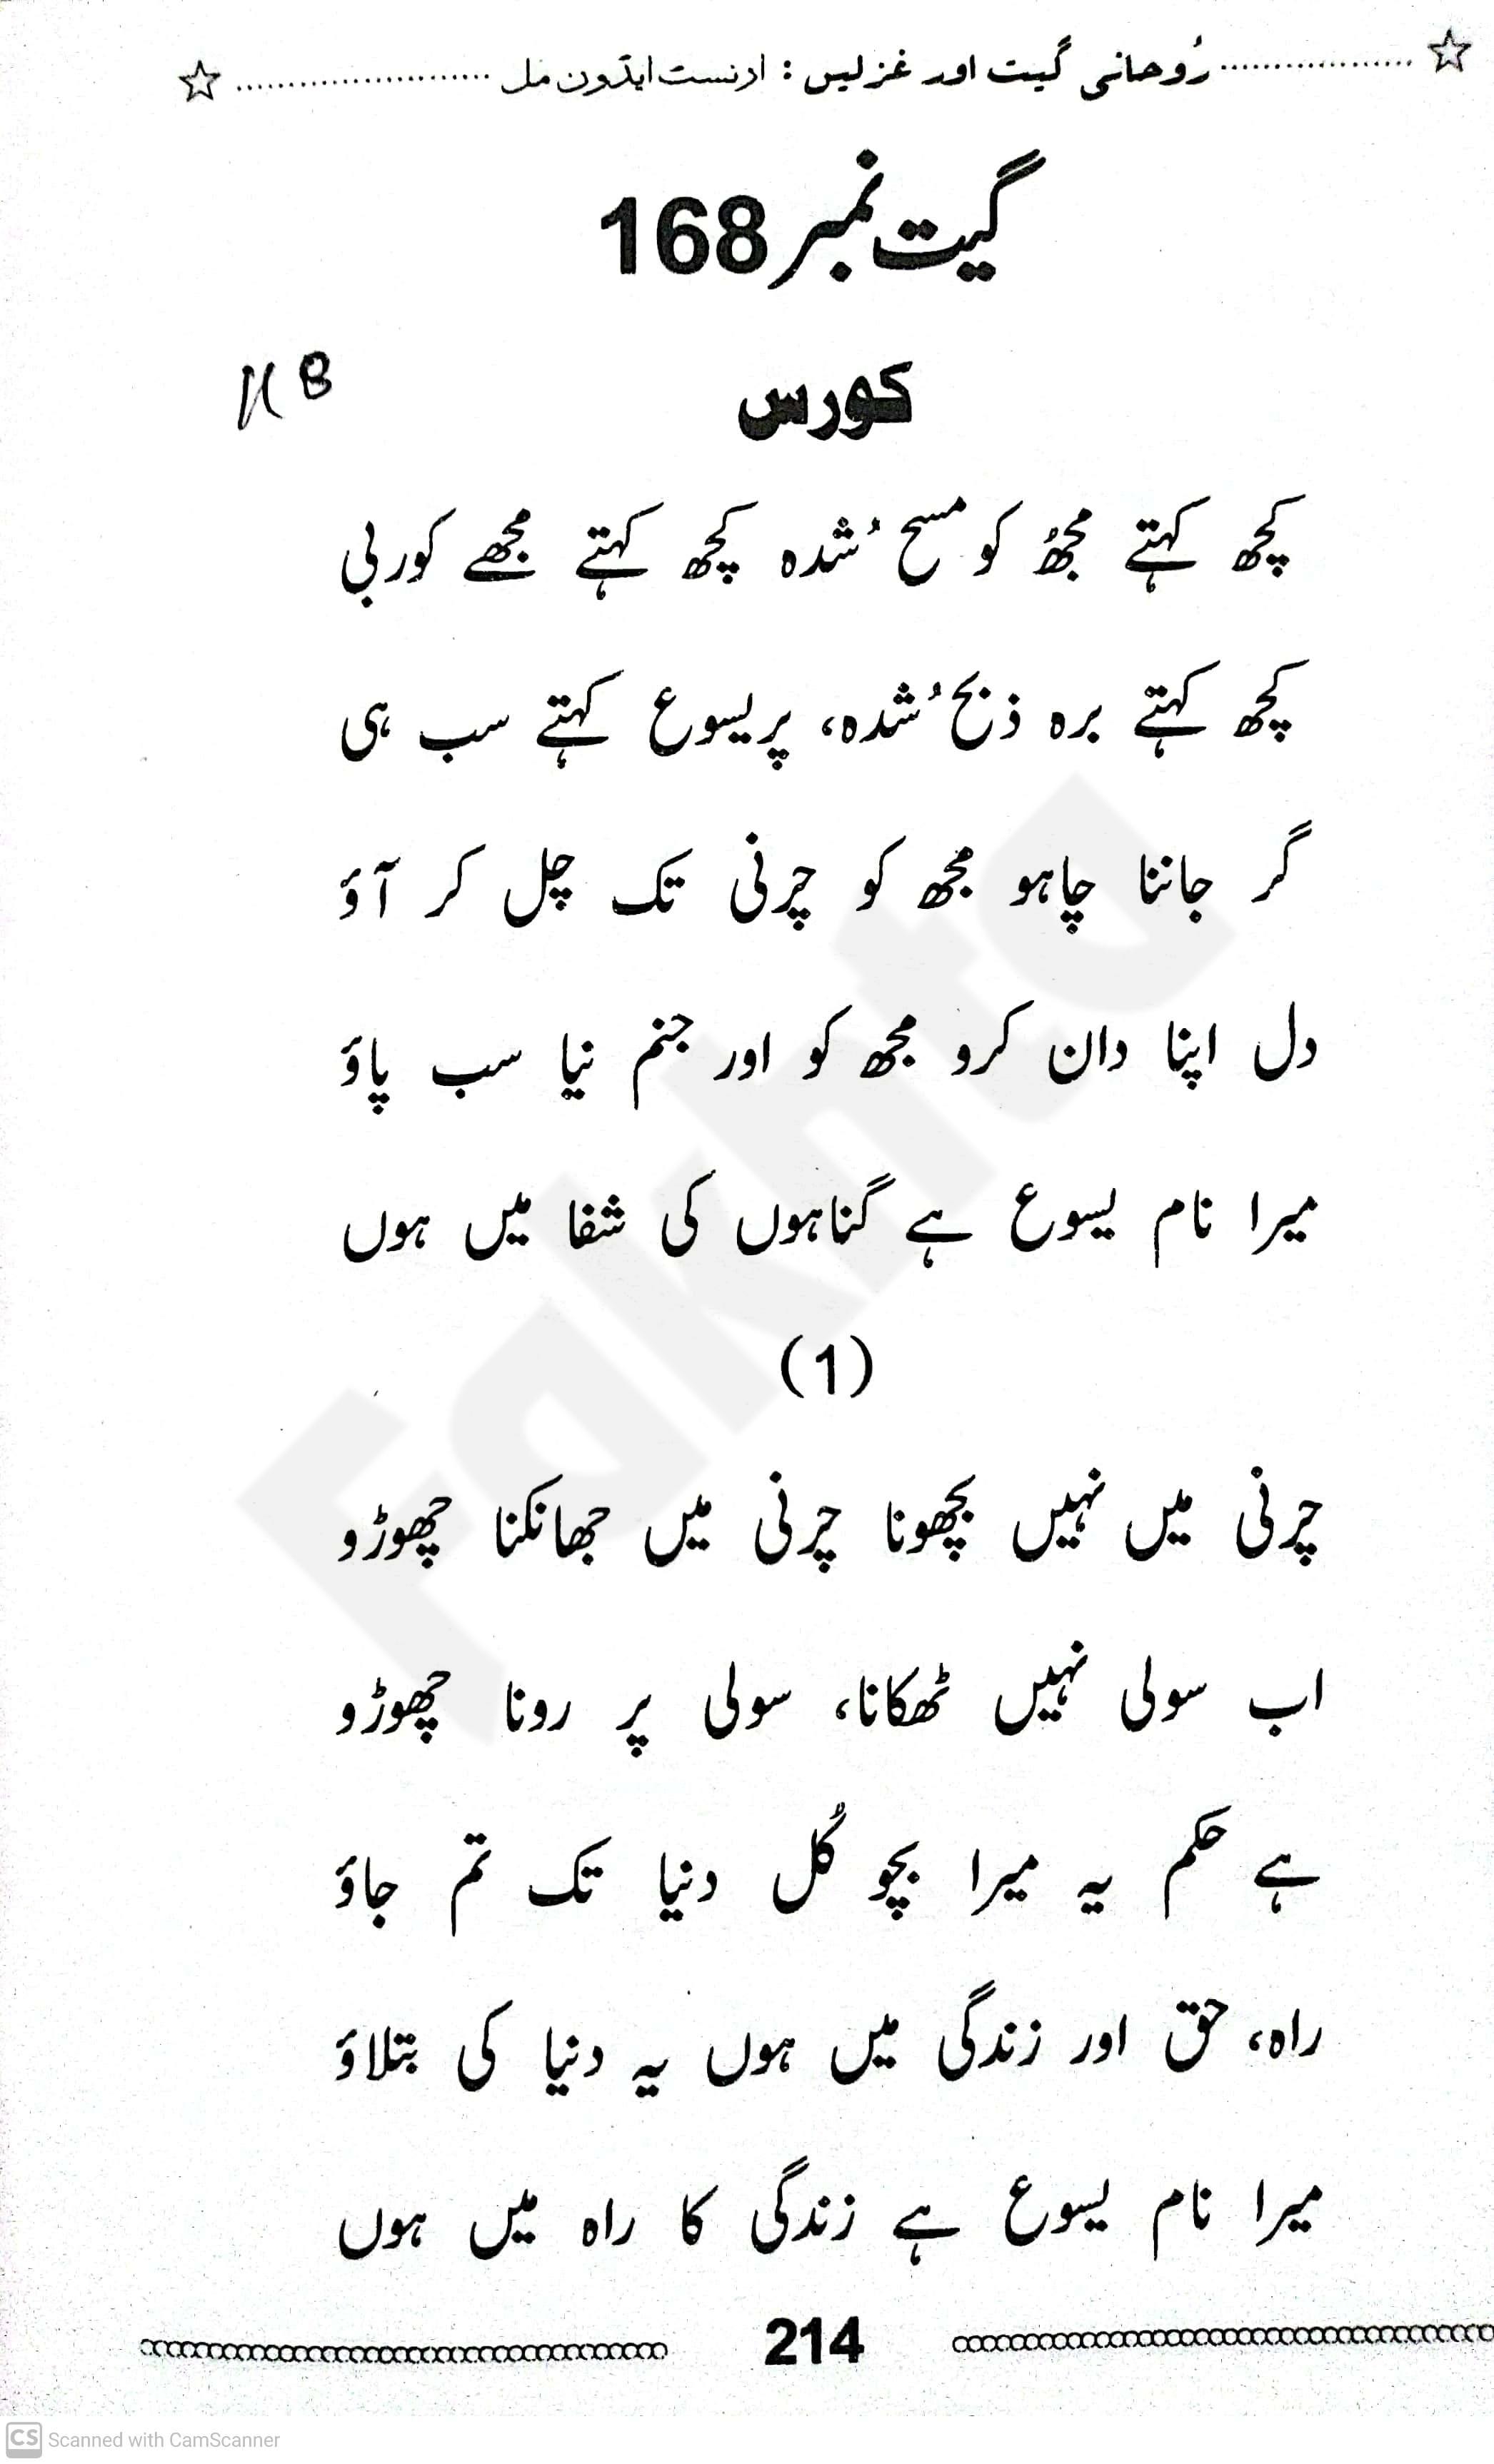 رُوحانی گیت اور غزلیں : ارنسٹ ایڈون مل
گیت نمبر 168
کورس
کچھ کہتے مجھُ کو مسح ُشدہ کچھ کہتے مجھے کوربی
کچھ کہتے برہ ذبح ُشدہ، پر یسوع کہتے سب ہی
گر جاننا چاہو مجھ کو چرنی تک چل کر آؤ
دل اپنا دان کرو مجھ کو اور جنم نیا سب پاؤ
میرا نام یسوع ہے گناہوں کی شفا میں ہوں
(1)
چرنی میں نہیں بچھونا چرنی میں جھانکنا چھوڑو
اب سولی نہیں ٹھکانا، سولی پر رونا چھوڑو
ہے حکم یہ میرا بچو کُل دنیا تک تم جاؤ
راہ، حق اور زندگی میں ہوں یہ دنیا کی بتلاؤ
میرا نام یسوع ہے زندگی کا راہ میں ہوں
214
Fakhta
CS Scanned with CamScanner